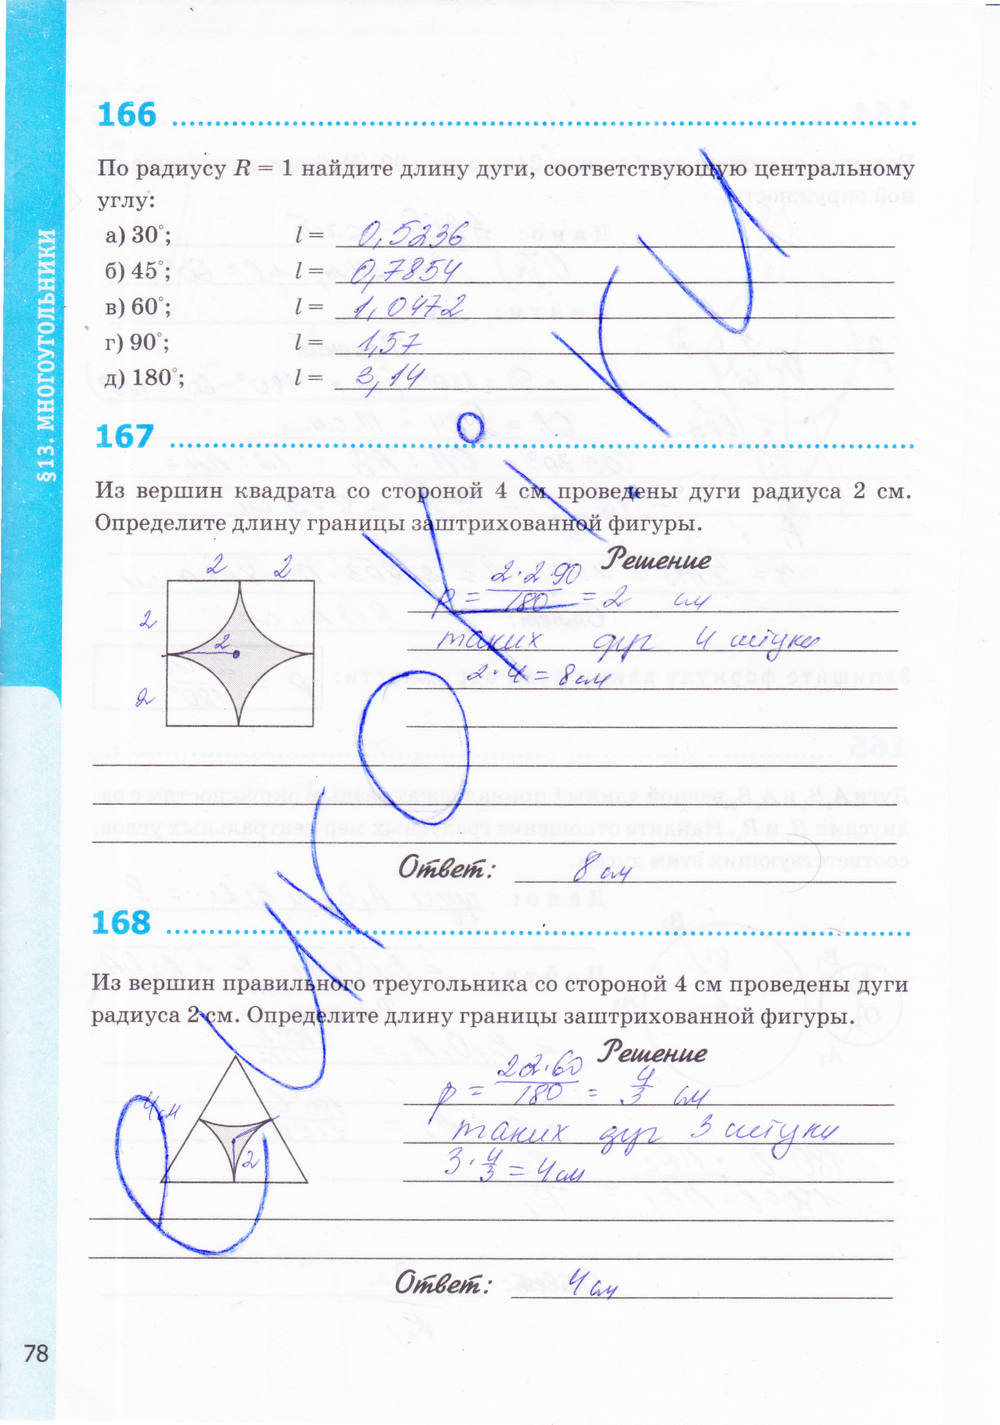 166
По радиусу R = 1 найдите длину дуги, соответствующую центральному
углу:
а) 30°; l = 0,5236
б) 45°; l = 0,7854
в) 60°; l = 1,0472
г) 90°; l = 1,57
д) 180°; l = 3,14
167
Из вершин квадрата со стороной 4 см проведены дуги радиуса 2 см.
Определите длину границы заштрихованной фигуры.
Решение
2 2
2
2
2
p = 2·2 90 / 180 = 2 см
таких дуг 4 штуки
2·4 = 8 см
Ответ: 8 см
168
Из вершин правильного треугольника со стороной 4 см проведены дуги
радиуса 2 см. Определите длину границы заштрихованной фигуры.
Решение
4 см
2
p = 22·60 / 180 = 4/3 см
таких дуг 3 штуки
3·4/3 = 4 см
Ответ: 4 см
78
§13. МНОГОУГОЛЬНИКИ